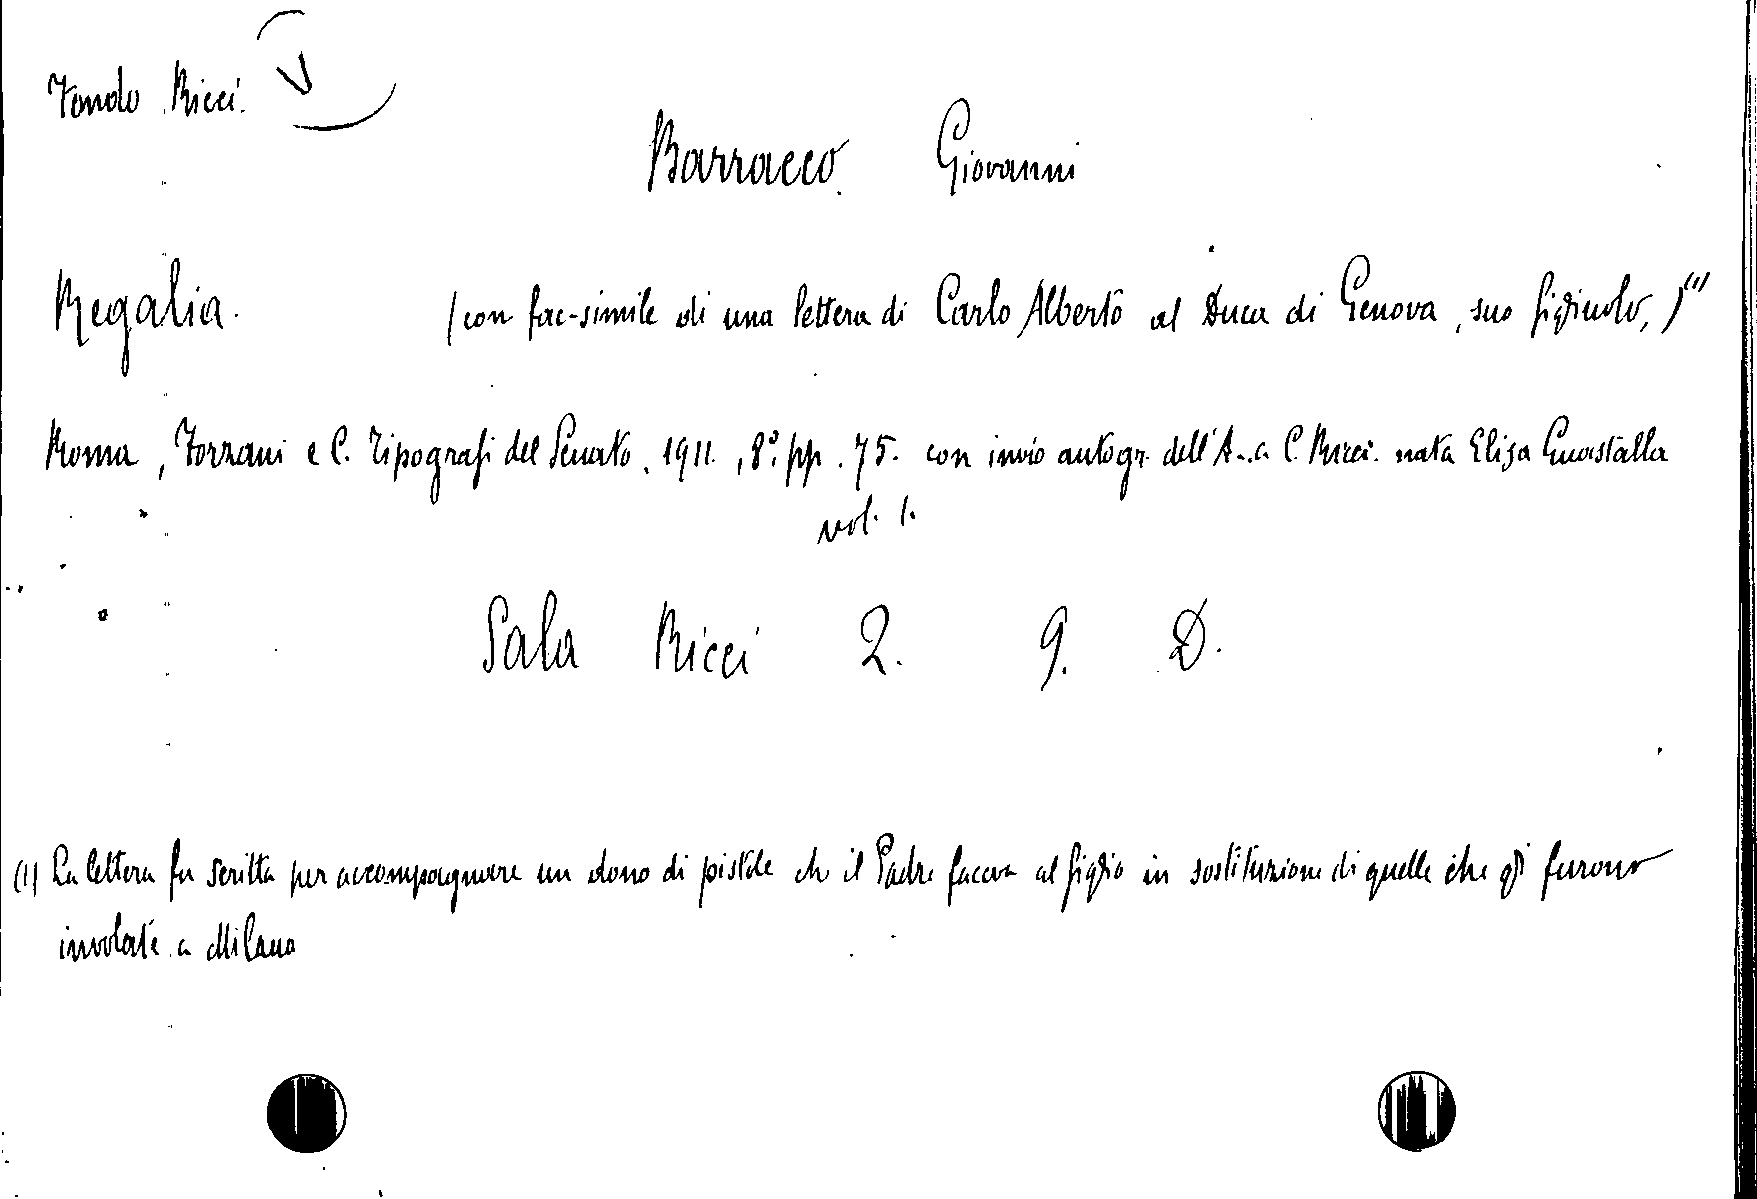 Fondo Ricci. V
Barracco Giovanni
Regalia. (con fac-simile di una lettera di Carlo Alberto al Duca di Genova, suo figliuolo,) (1)
Roma, Forzani e C. Tipografi del Senato, 1911, 8°. pp. 75. con invio autogr. dell'A. a C. Ricci. nata Elisa Guastalla
vol. 1.
Sala Ricci 2. 9. D.
(1) La lettera fu scritta per accompagnare un dono di pistole che il Padre faceva al figlio in sostituzione di quelle che gli furono
involate a Milano